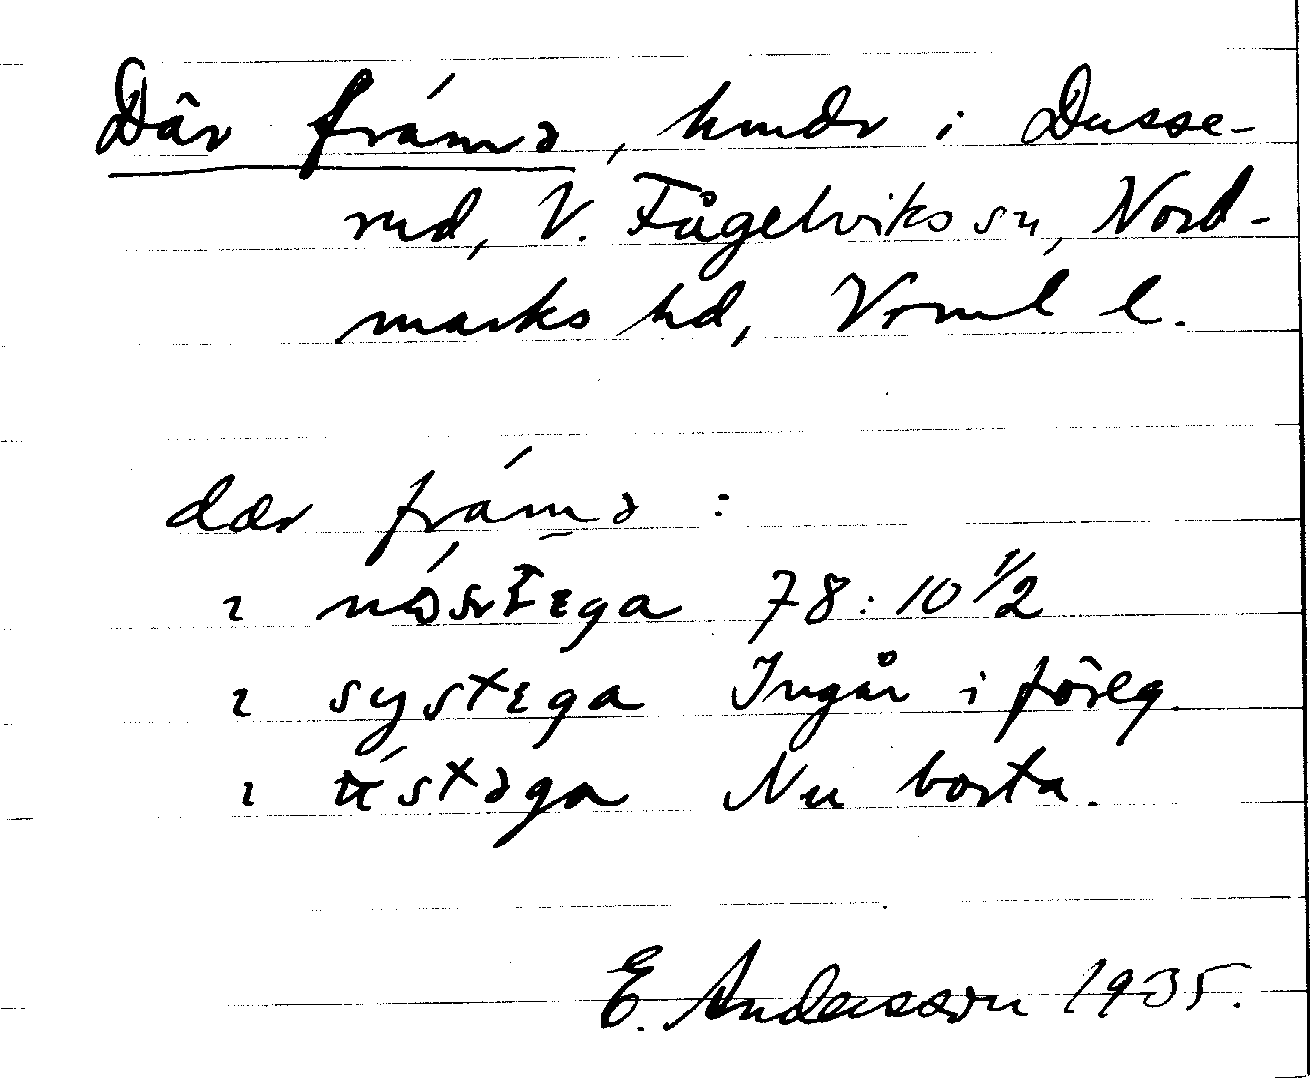 Där främə, hmdr i Dusse-
rud, V. Fågelviks sn, Nord-
marks hd, Vrml l.
dær frámə :
ɩ nóstega 78:10 1/2
ɩ systɛga Ingår i föreg.
ɩ ústəga Nu borta.
E. Andersson 1935.